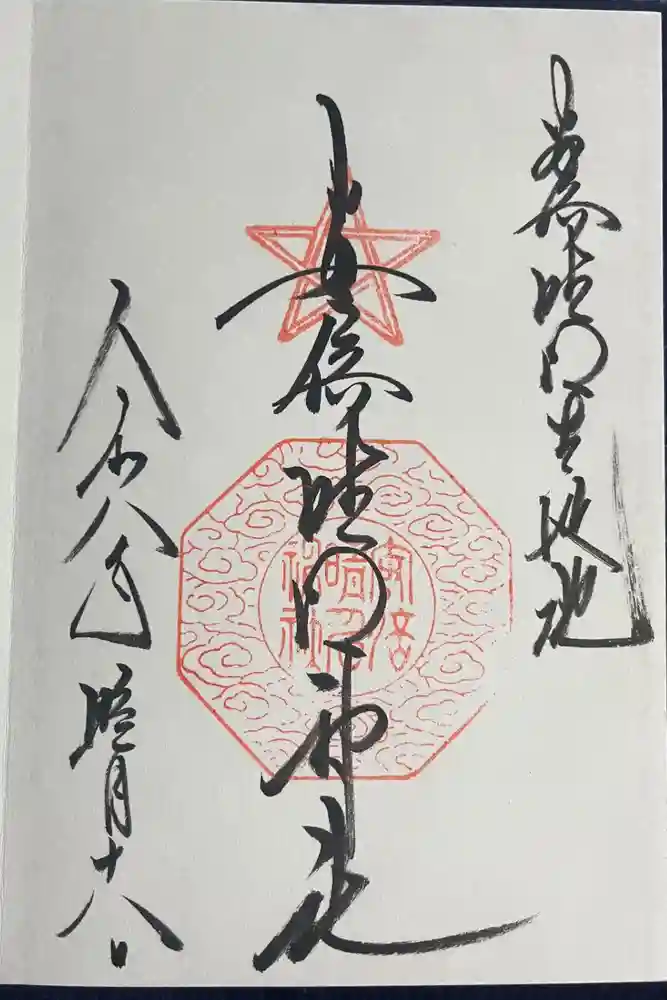 安倍晴明生誕地
安倍晴明神社
安倍
晴明
神社
令和八年睦月十八日